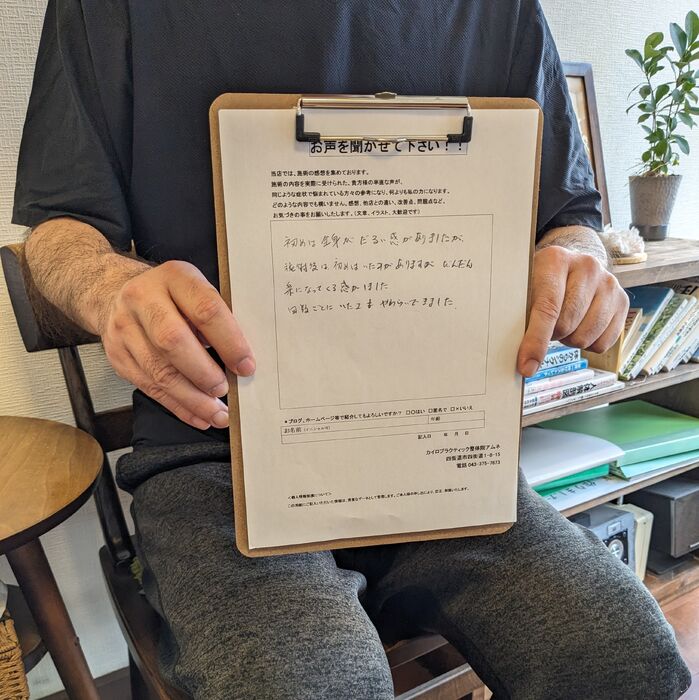 お声を聞かせて下さい!!
当店では、施術の感想を集めております。
施術の内容を実際に受けられた、貴方様の率直な声が、
同じような症状で悩まれている方々の参考になり、何よりも私の力になります。
どのような内容でも構いません。感想、他店との違い、改善点、問題点など、
お気づきの事をお願いいたします。(文章、イラスト、大歓迎です)
初めは全身がだるい感がありましたが、
施術後は、初めはいたみがありますが じんだん
楽になってくる感がしました
回数ごとに いたみも やわらいできました。
●ブログ、ホームページ等で紹介してもよろしいですか? □○はい □匿名で □×いいえ
お名前(イニシャル可) 年齢
記入日 年 月 日
カイロプラクティック整体院アムネ
四街道市四街道1-8-15
電話 043-375-7673
<個人情報保護について>
人体解剖